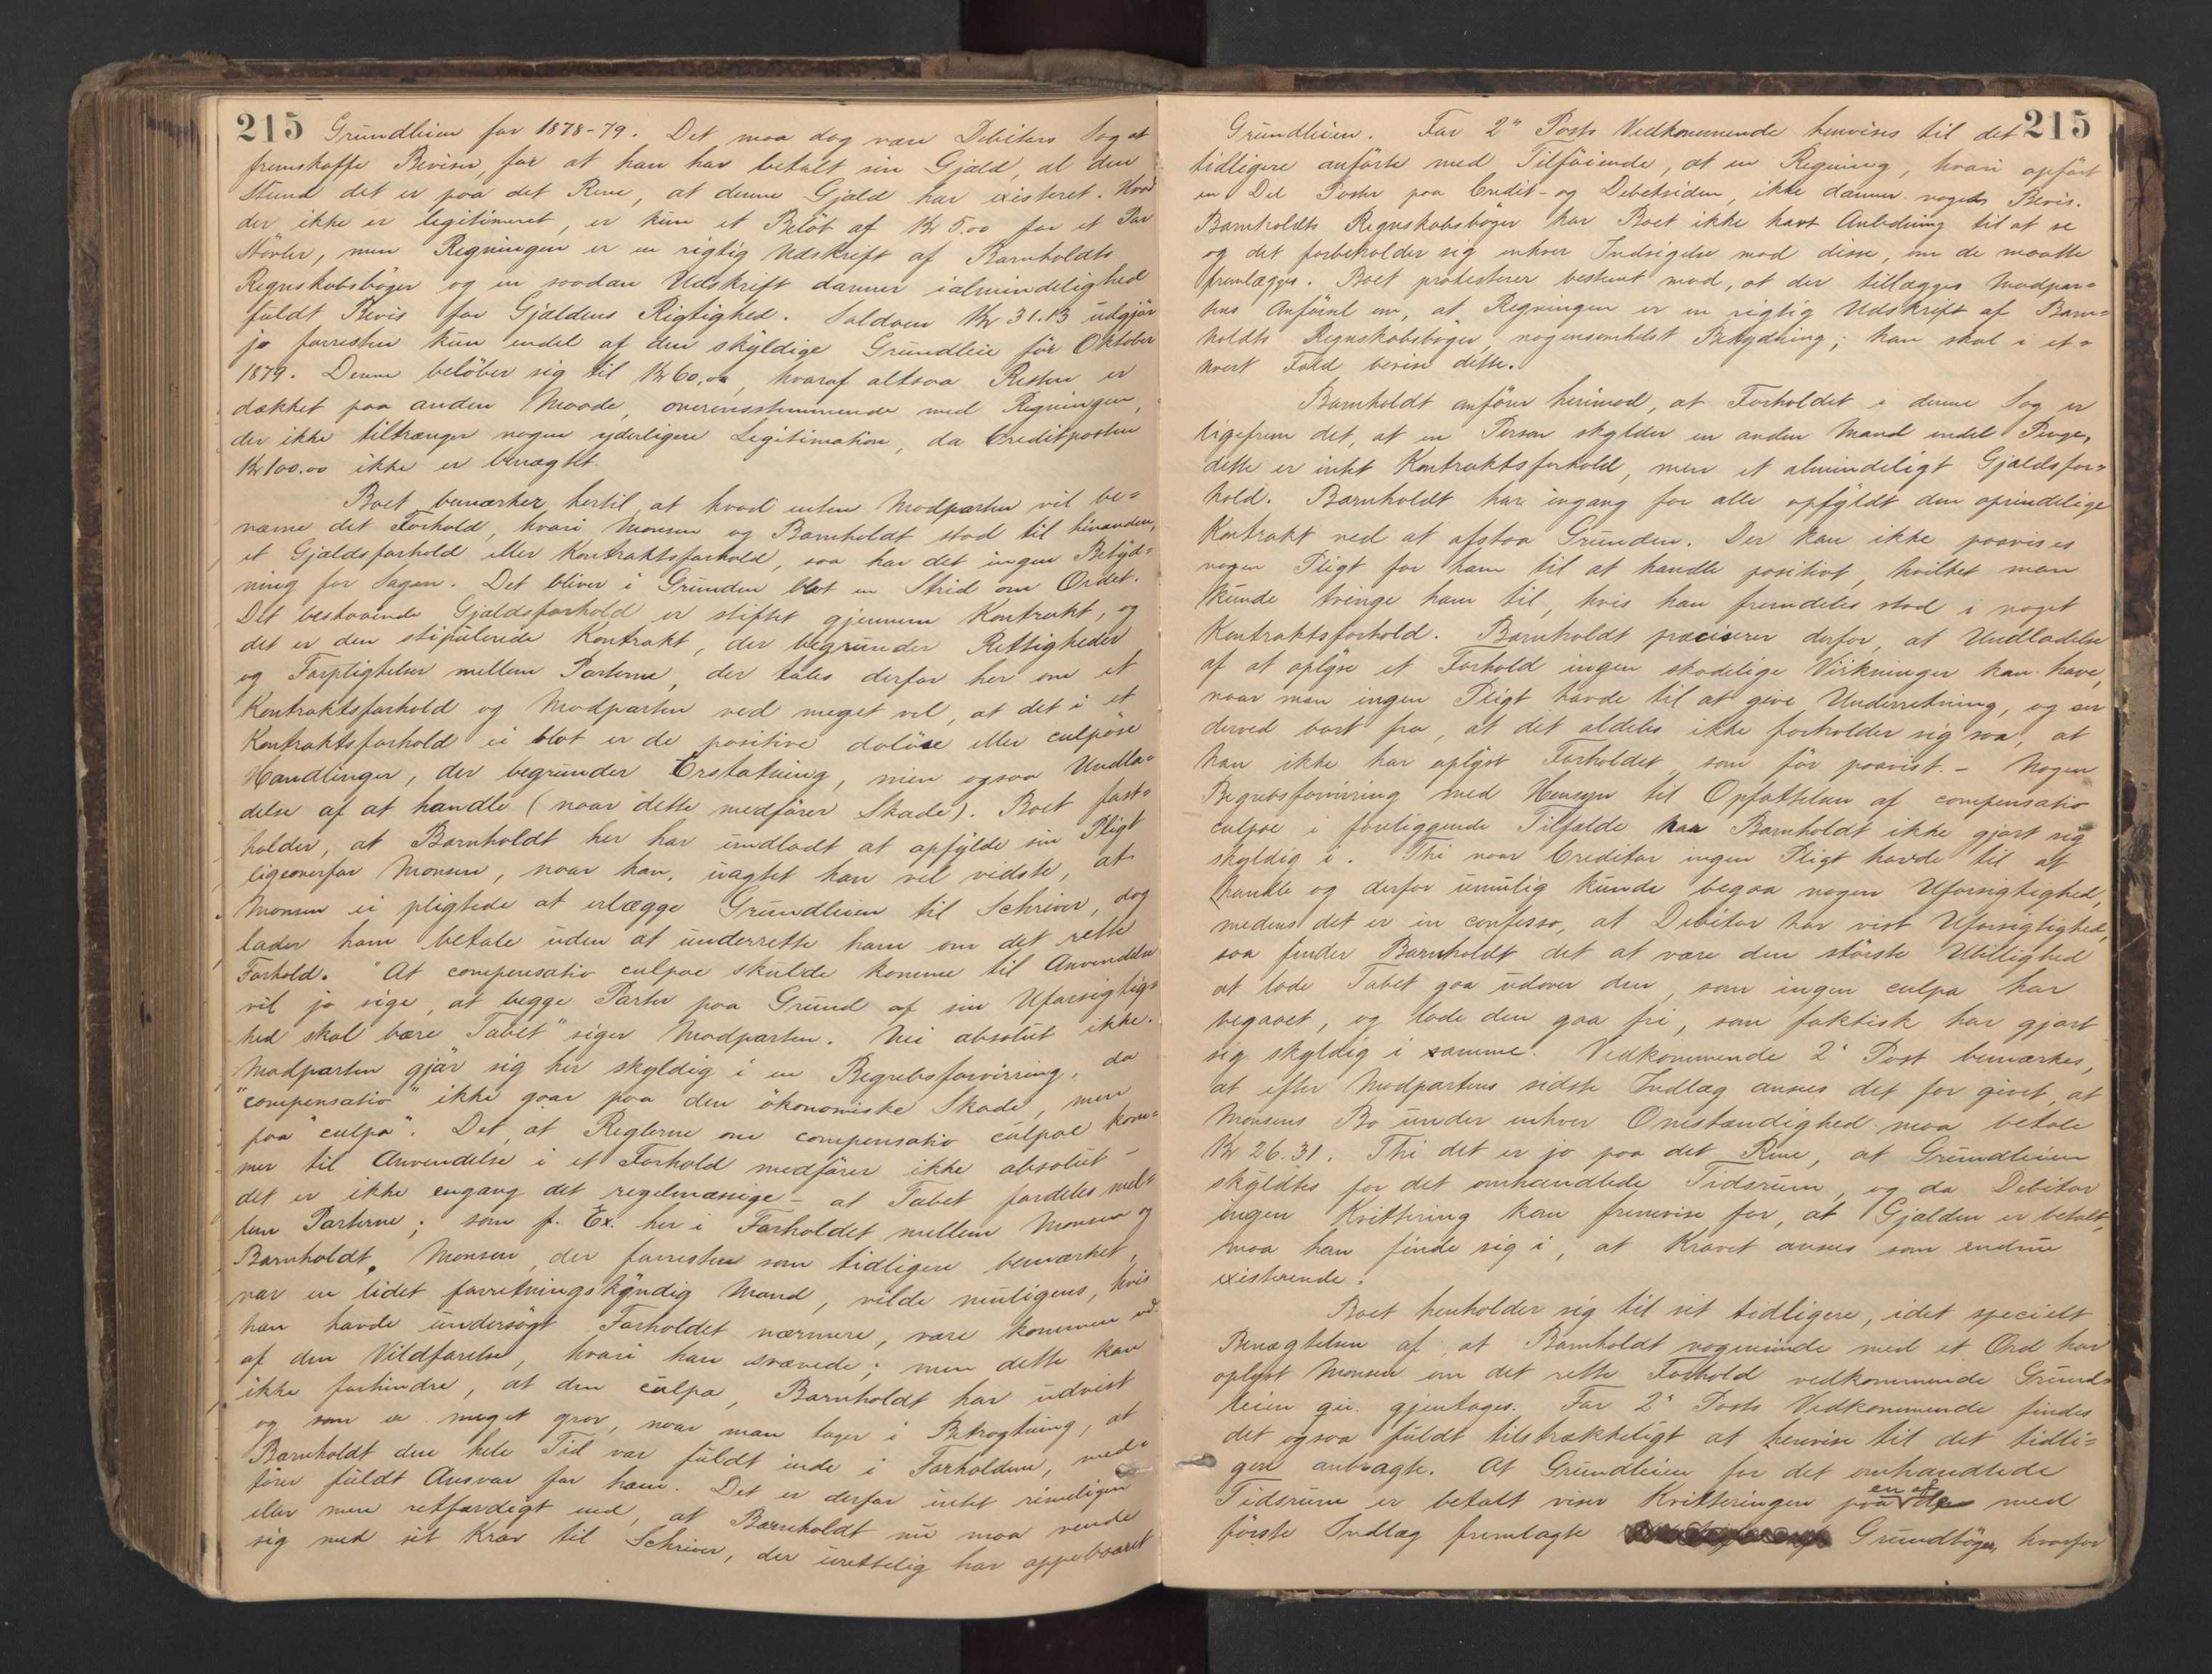 215 Grundleien for 1878-79. Det maa dog være Debitors Sag at
fremskaffe Beviser, for at han har betalt sin Gjæld, al den
Stund det er paa det Rene, at denne Gjæld har existeret. Hvad
der ikke er legitimeret, er kun et Beløb af Kr 5.00 for et Par
Støvler, men Regningen er en rigtig Udskrift af Barnholdts
Regnskabsbøger og en saadan Udskrift danner i almindelighed
fuldt Bevis for Gjældens Rigtighed. Saldoen Kr 31.13 udgjør
jo forresten kun endel af den skyldige Grundleie før Oktober
1879. Denne beløber sig til Kr 60,00, hvoraf altsaa Resten er
dækket paa anden Maade, overensstemmende med Regningen,
der ikke tiltrænger nogen yderligere Legitimation, da Creditposten
Kr 100.00 ikke er benægtet.
Boet bemærker hertil, at hvad enten Modparten vil be-
nævne det Forhold, hvori Monsen og Barnholdt stod til hinanden,
et Gjældsforhold eller Kontraktsforhold, saa har det ingen Betyd-
ning for Sagen. Det bliver i Grunden blot en Strid om Ordet.
Det bestaaende Gjældsforhold er stiftet gjennem Kontrakt, og
det er den stipulerede Kontrakt, der begrunder Rettigheder
og Forpligtelser mellem Parterne, der tales derfor her om et
Kontraktsforhold og Modparten ved meget vel, at det i et
Kontraktsforhold ei blot er de positive doløse eller culpøse
Handlinger, der begrunder Erstatning, men ogsaa Undla-
delse af at handle (naar dette medfører Skade). Boet fast-
holder, at Barnholdt her har undladt at opfylde sin Pligt
ligeoverfor Monsen, naar han, uagtet han vel vidste, at
Monsen ei pligtede at erlægge Grundleien til Schriver, dog
lader ham betale uden at underrette ham om det rette
Forhold. "At compensatio culpae skulde komme til Anvendelse
vil jo sige, at begge Parter paa Grund af sin Uforsigtig-
hed skal bære Tabet" siger Modparten. Nei absolut ikke.
Modparten gjør sig her skyldig i en Begrebsforvirring, da
"compensatio" ikke gaar paa den økonomiske Skade, men
paa "culpa". Det, at Reglerne om compensatio culpae kom-
mer til Anvendelse i et Forhold medfører ikke absolut –
det er ikke engang det regelmæssige – at Tabet fordeles mel-
lem Parterne; som f. Ex. her i Forholdet mellem Monsen og
Barnholdt. Monsen, der forresten som tidligere bemærket,
var en lidet forretningskyndig Mand, vilde muligens, hvis
han havde undersøgt Forholdet nærmere, være kommen ud
af den Vildfarelse, hvori han svævede; men dette kan
ikke forhindre, at den culpa, Barnholdt har udvist
og som er meget grov, naar man tager i Betragtning, at
Barnholdt den hele Tid var fuldt inde i Forholdene, med-
fører fuldt Ansvar for ham. Det er derfor intet rimeligere
eller mere retfærdigt end, at Barnholdt nu maa vende
sig med sit Krav til Schriver, der urettelig har oppebaaret
Grundleien. For 2" Posts Vedkommende henvises til det 215
tidligere anførte med Tilføiende, at en Regning, hvori opført
en Del Poster paa Credit- og Debetsiden, ikke danner nogets Bevis.
Barnholdts Regnskabsbøger har Boet ikke havt Anledning til at se
og det forbeholder sig enhver Indsigelse mod disse, om de maatte
fremlægges. Boet protesterer bestemt mod, at der tillægges Modpar-
tens Anførsel om, at Regningen er en rigtig Udskrift af Barn-
holdts Regnskabsbøger nogensomhelst Betydning; han skal i et-
hvert Fald bevise dette.
Barnholdt anfører herimod, at Forholdet i denne Sag er
ligefrem det, at en Person skylder en anden Mand endel Penge,
dette er intet Kontraktsforhold, men et almindeligt Gjældsfor-
hold. Barnholdt har engang for alle opfyldt den oprindelige
Kontrakt ved at afstaa Grunden. Der kan ikke paavises
nogen Pligt for ham til at handle positivt, hvilket man
kunde tvinge ham til, hvis han fremdeles stod i noget
Kontraktsforhold. Barnholdt præciserer derfor, at Undladelse
af at oplyse et Forhold ingen skadelige Virkninger kan have,
naar man ingen Pligt havde til at give Underretning, og ser
derved bort fra, at det aldeles ikke forholder sig saa, at
han ikke har oplyst Forholdet, som før paavist. – Nogen
Begrebsforvirring med Hensyn til Opfattelsen af compensatio
culpae i foreliggende Tilfælde har Barnholdt ikke gjort sig
skyldig i. Thi naar Creditor ingen Pligt havde til at
handle og derfor umulig kunde begaa nogen Uforsigtighed,
medens det er in confesso, at Debitor har vist Uforsigtighed,
saa finder Barnholdt det at være den største Ubillighed
at lade Tabet gaa udover den, som ingen culpa har
begaaet, og lade den gaa fri, som faktisk har gjort
sig skyldig i samme. Vedkommende 2" Post bemærkes,
at efter Modpartens sidste Indlæg ansees det for givet, at
Monsens Bo under enhver Omstændighed maa betale
Kr 26.31. Thi det er jo paa det Rene, at Grundleien
skyldtes for det omhandlede Tidsrum, og da Debitor
ingen Kvittering kan fremvise for, at Gjælden er betalt,
maa han finde sig i, at Kravet ansees som endnu
existerende.
Boet henholder sig til sit tidligere, idet specielt
Benægtelsen af, at Barnholdt nogensinde med et Ord har
oplyst Monsen om det rette Forhold vedkommende Grund-
leien gjentages. For 2" Posts Vedkommende findes
det ogsaa fuldt tilstrækkeligt at henvise til det tidli-
gere anbragte. At Grundleien for det omhandlede
Tidsrum er betalt viser Kvitteringen paa en af de med
første Indlæg fremlagte Grundbøger, hvorfor